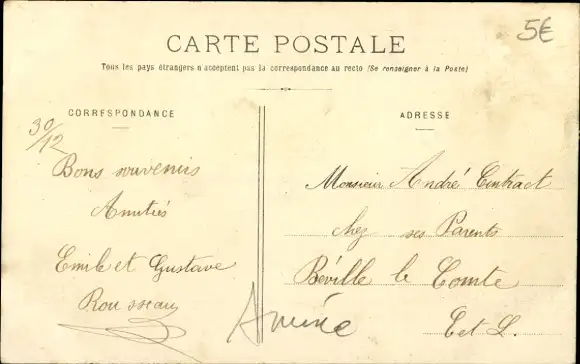 5€
CARTE POSTALE
Tous les pays étrangers n'acceptent pas la correspondance au recto (Se renseigner à la Poste)
CORRESPONDANCE
30/12
Bons souvenirs
Amitiés
Emile et Gustave
Rousseau
ADRESSE
Monsieur André
chez ses Parents
Béville le Comte
E et L.